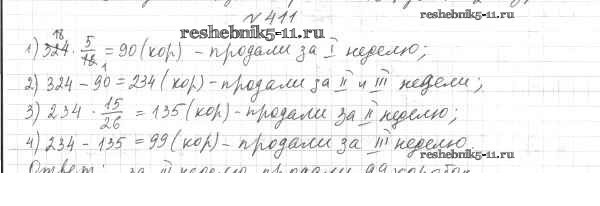 №411
reshebnik5-11.ru
1) 324 · 5/18 = 90 (кор) - продали за I неделю;
2) 324 - 90 = 234 (кор) - продали за II и III недели;
3) 234 · 15/26 = 135 (кор) - продали за II неделю;
4) 234 - 135 = 99 (кор) - продали за III неделю.
reshebnik5-11.ru
Ответ: за III неделю продали 99 коробок